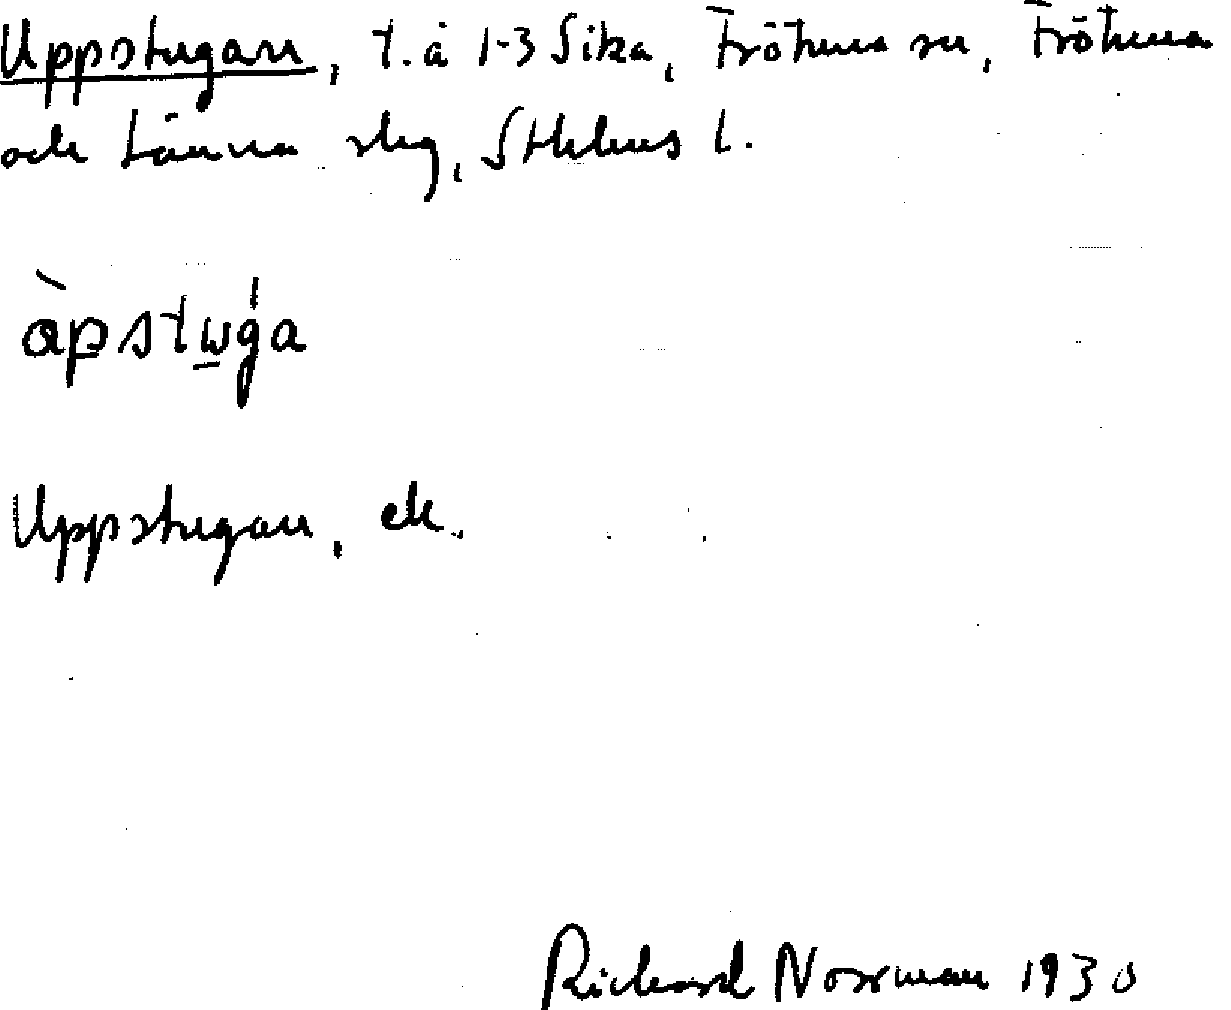 Uppstugan, t. å 1-3 Sika, Frötuna sn, Frötuna
och Länna skg, Sthlms l.
àpstwga
Uppstugan, ek.
Rickard Norrman 1930